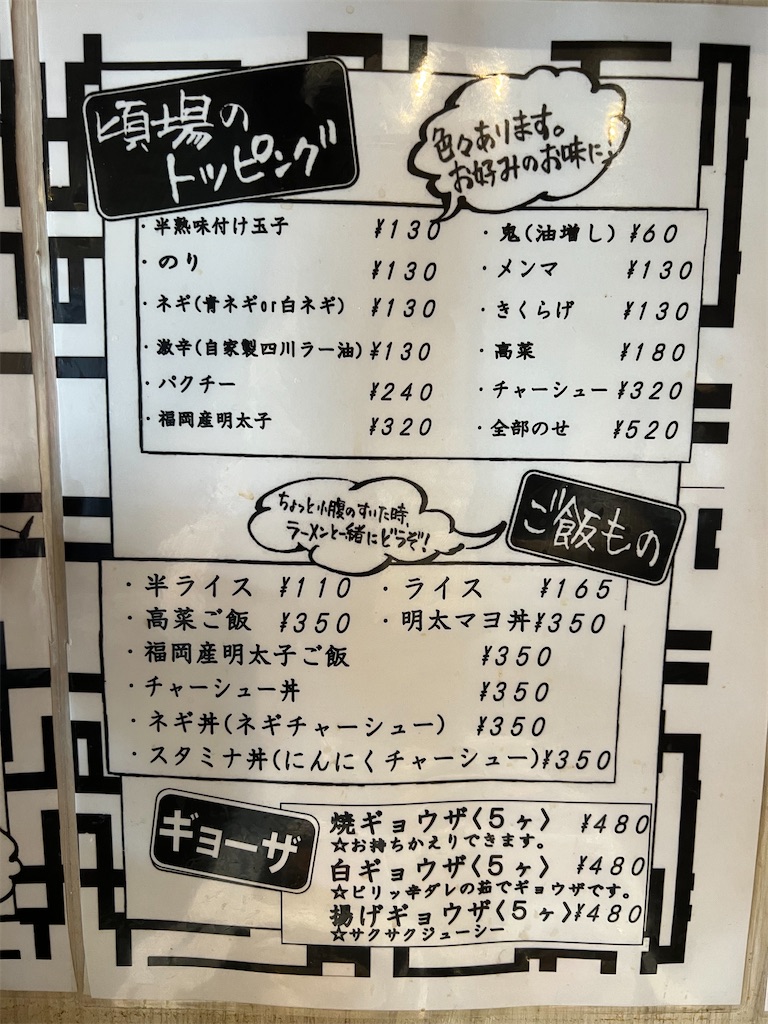 頃場の
トッピング
色々あります。
お好みのお味に!
・半熟味付け玉子 ¥130
・のり ¥130
・ネギ(青ネギor白ネギ) ¥130
・激辛(自家製四川ラー油) ¥130
・パクチー ¥240
・福岡産明太子 ¥320
・鬼(油増し) ¥60
・メンマ ¥130
・きくらげ ¥130
・高菜 ¥180
・チャーシュー ¥320
・全部のせ ¥520
ちょっと小腹のすいた時、
ラーメンと一緒にどうぞ!
ご飯もの
・半ライス ¥110 ・ライス ¥165
・高菜ご飯 ¥350 ・明太マヨ丼 ¥350
・福岡産明太子ご飯 ¥350
・チャーシュー丼 ¥350
・ネギ丼(ネギチャーシュー) ¥350
・スタミナ丼(にんにくチャーシュー) ¥350
ギョーザ
焼ギョウザ〈5ヶ〉 ¥480
☆お持ちかえりできます。
白ギョウザ〈5ヶ〉 ¥480
☆ピリッ辛ダレの茹でギョウザです。
揚げギョウザ〈5ヶ〉 ¥480
☆サクサクジューシー